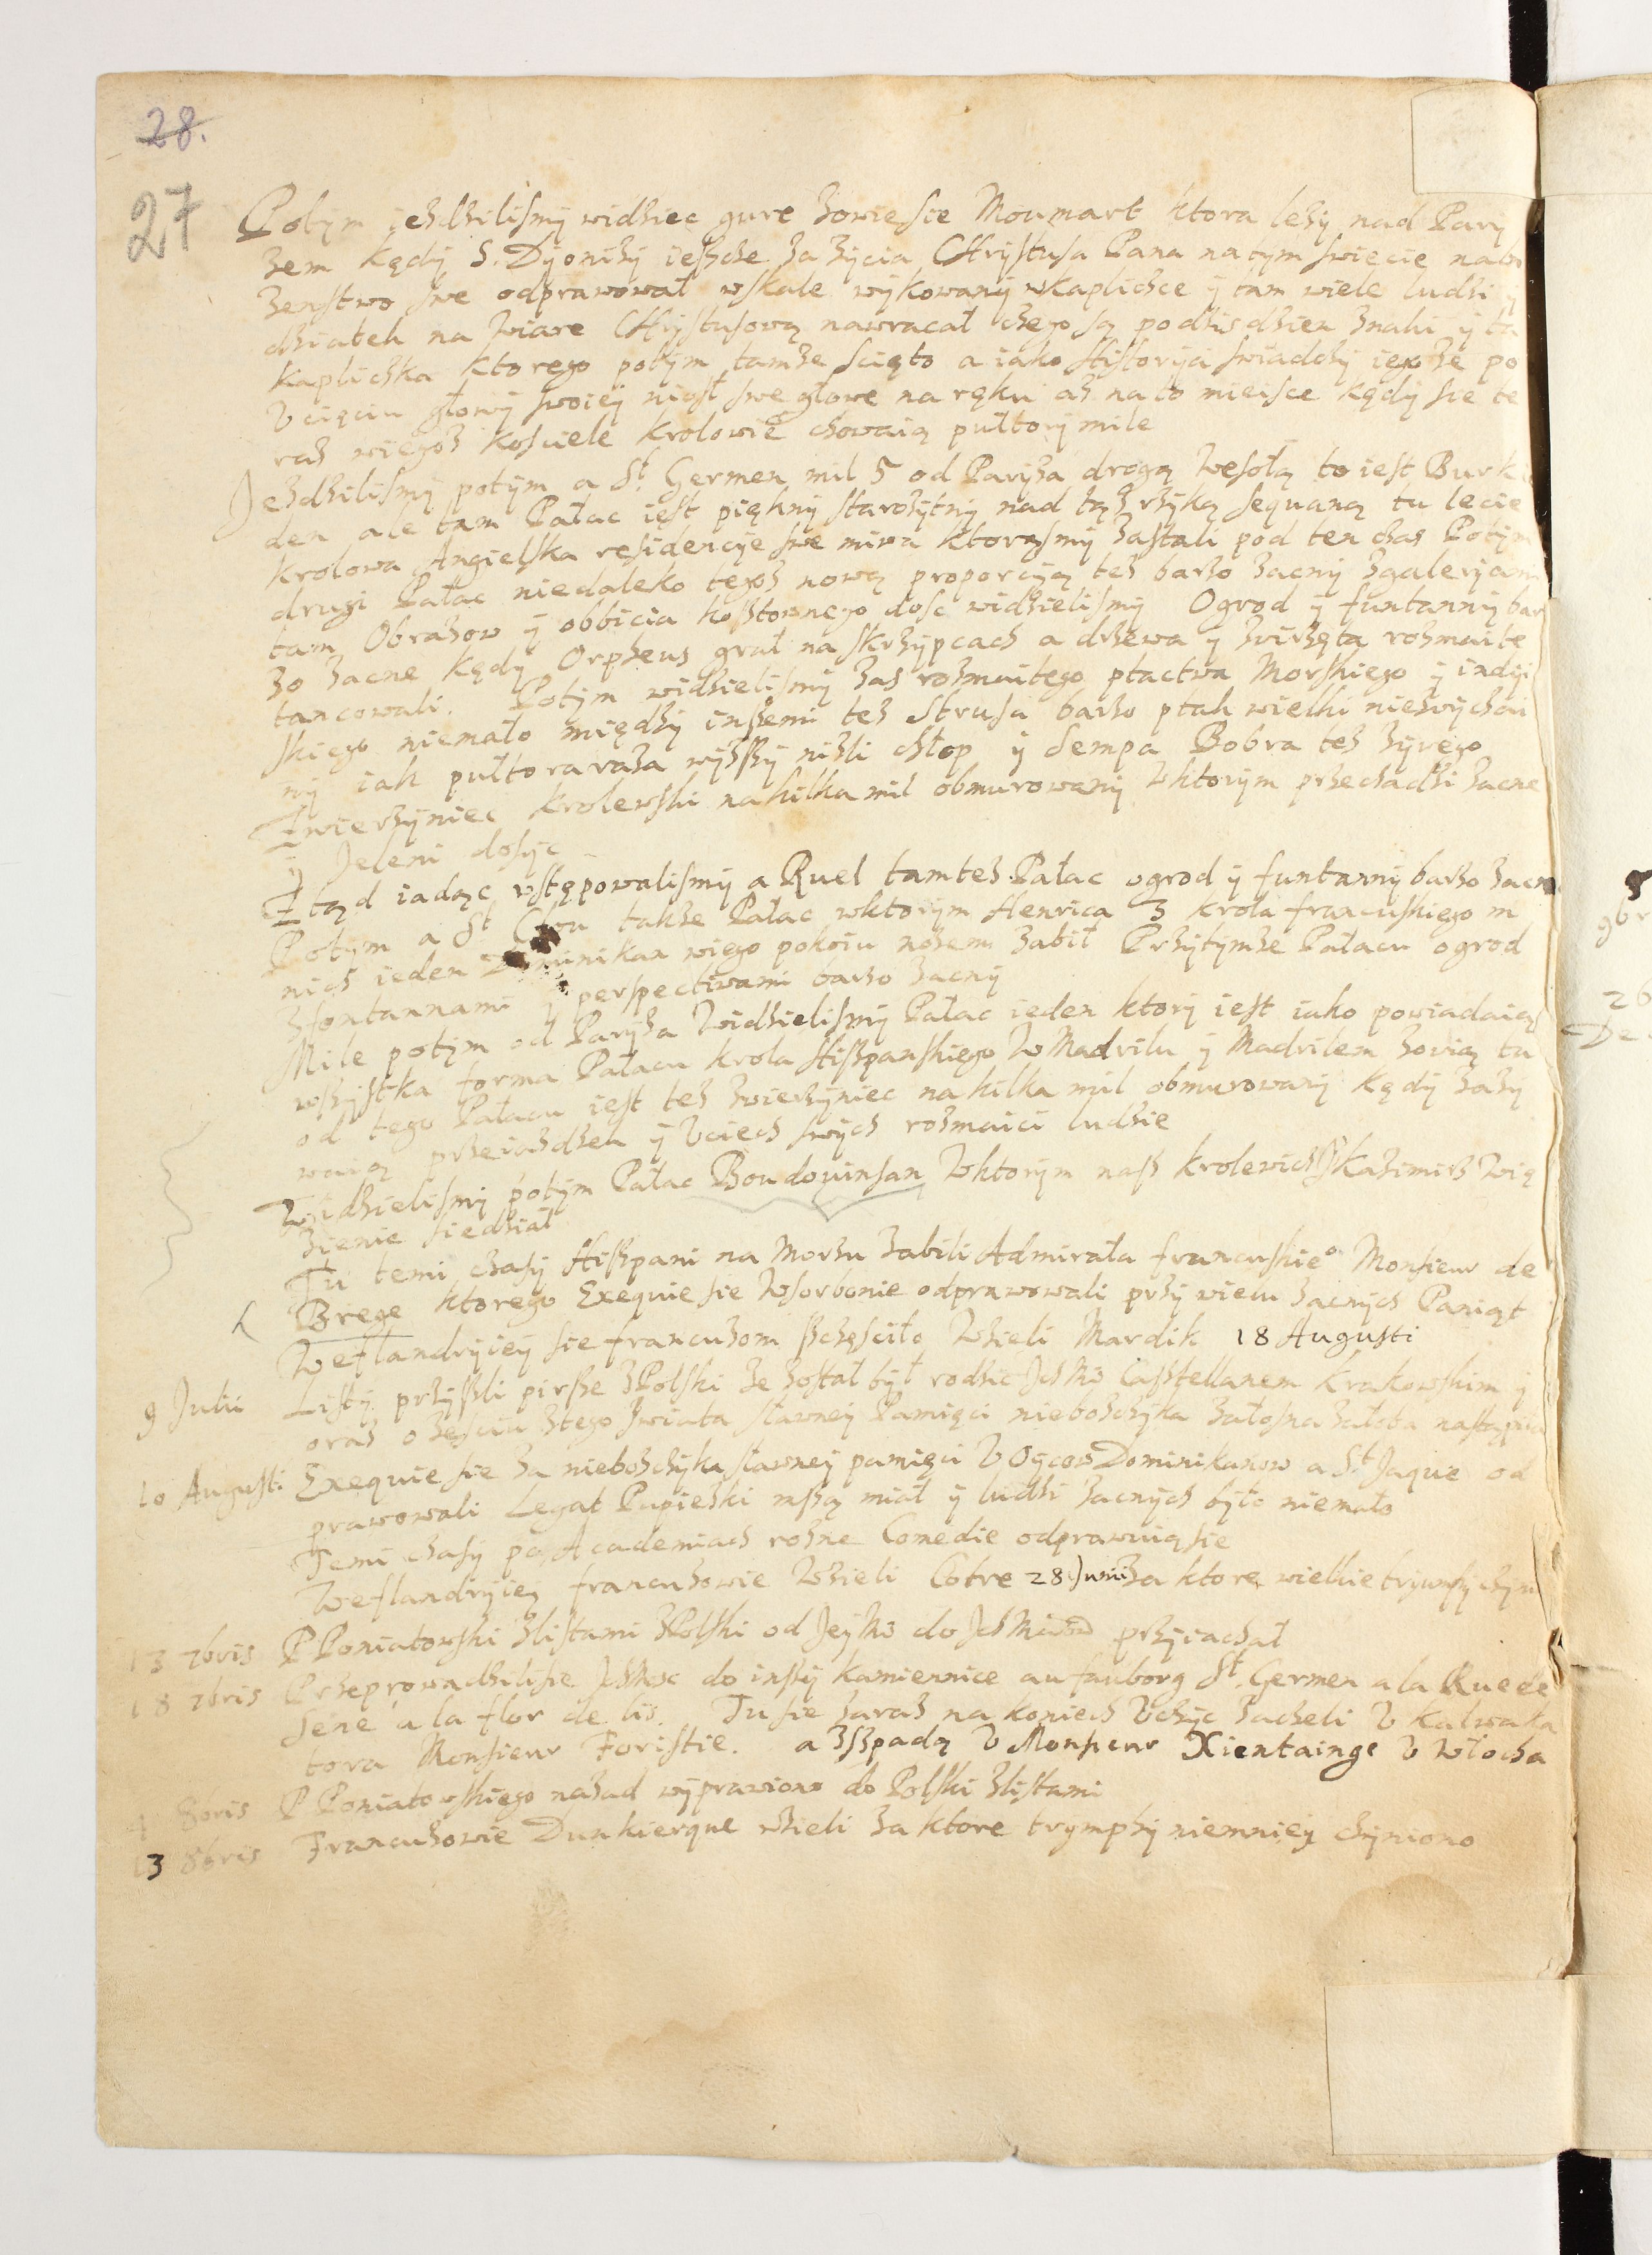 28.
27
Potym iezdzilismy widziec gure zowie sie Moumart ktora lezy nad Pary
zem kędy S. Dyonizy ieszcze za zycia CHrystusa Pana na tym swiecie nabo
zenstwo swe odprawował w skale wykowany w kapliczce y tam wiele ludzi y
dziatek na wiare CHrystusową nawracał czego są po dzis dzien znaki y ta
Kapliczka ktorego potym tamze scięto a iako Historyi swiadczy iegoz ze po
Ucięciu głowy swoiey niosł swe głowe na ręku az na to mieisce kędy sie te
raz w iegoz kosciele krolowie chowaią pułtory mile
Jezdzilismy potym a St Germen mil 5 od Paryza drogą wesołą to iest Burk
den ale tam Pałac iest piękny starozytny nad tąz rzyką sequaną tu lecie
krolowa Angielska residencyie swe miwa ktorąsmy zastali pod ten czas Potym
drugi Pałac niedaleko tegoz nową proporcyią tez barzo zacny z galeryiami
tam Obrazow y obbicia kosztownego dosc widzielismy Ogrod y funtanny bar
zo zacne kędy Orpheus grał na skrzypcach a drzewa y zwirzęta rozmaite
tancowali. Potym widzielismy zas rozmaitego ptactwa Morskiego y indyi
skiego niemało między inszemi tez Strusa barzo ptak wielki niezwyczai
ny iak pułtora raza wyzszy nizli chłop y Sempa Bobra tez zywego
Zwierzyniec krolewski na kilka mil obmurowany w ktorym przechadzki zacne
y Jeleni dosyc
Ztąd iadąc wstępowalismy a Ruel tam tez Pałac ogrod y funtanny barzo zacne
Potym a St Clou takze Pałac w ktorym Henrica 3 krola francuskiego m
nich ieden Dominikan w iego pokoiu nozem zabił Przy tymze Pałacu ogrod
z fontannami y perspectiwami barzo zacny
Mile potym od Paryza widzielismy Pałac ieden ktory iest iako powiadaią
wszystka forma Pałacu krola Hiszpanskiego w Madrilu y Madrilem zowią tu
od tego Pałacu iest tez zwierzyniec na kilka mil obmurowany kędy zazy
waią przeiazdzek y Uciech swych rozmaici ludzie
Widzielismy potym Pałac Boudouinsan w ktorym nasz krolewicz Kazimirz wię
zienie siedział
Tu temi czasy Hiszpani na Morzu zabili Admirała francuskie° Monsieur de
Breze ktorego Exequie sie w Sorbonie odprawowali przy wielu zacnych Paniąt
We flandryiey sie francuzom szczęsciło Wzieli Mardik 18 Augusti
9 Julii Listy przyszli pirsze z Polski ze został był rodzic Ich Mw Casztellanem krakowskim y
oraz o zesciu z tego swiata sławney Pamięci nieboszczyka załosna załoba nastąpiła
10 Augusti Exequie sie za nieboszczyka sławney pamięci U Oycow Dominikanow a St Jaque od
prawowali Legat Papieski mszą miał y ludzi zacnych było niemało
Temi czasy po Academiach rozne Comedie odprawuią sie
We flandryiey francuzowie Wzieli Cotre 28 Junii za ktore wielkie tryumphy czyn
13 7bris P Poniatowski z listami z Polski od Jey Mci do Ich Mciow przyiachał
18 7bris Przeprowadzilisie Ich Msc do inszy kamiennice au fauborg St. Germen a la Rue de
Sene a la flor de lis. Tu sie zaraz na koniech Uczyc zaczeli U kalwaka
tora Monsieur Foristie. a z szpadą U Monsieur Xientainge U Włocha
4 8bris P Poniatowskiego nazad wyprawiono do Polski z listami
13 8bris Francuzowie Dunkierque wzieli za ktore trymphy niemniey czyniono